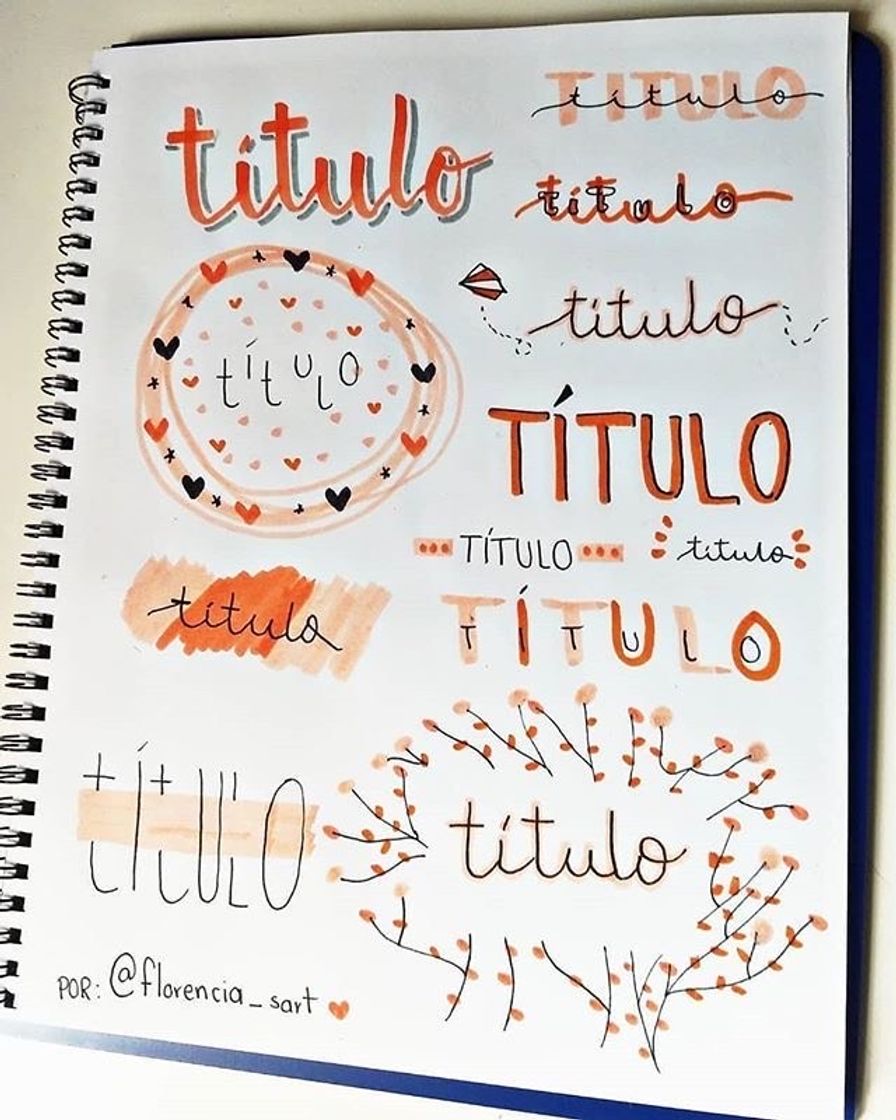 título
TITULO
título
título
título
título
TÍTULO
TÍTULO
título
título
TÍTULO
T Í T U L O
título
título
POR: @florencia_sart